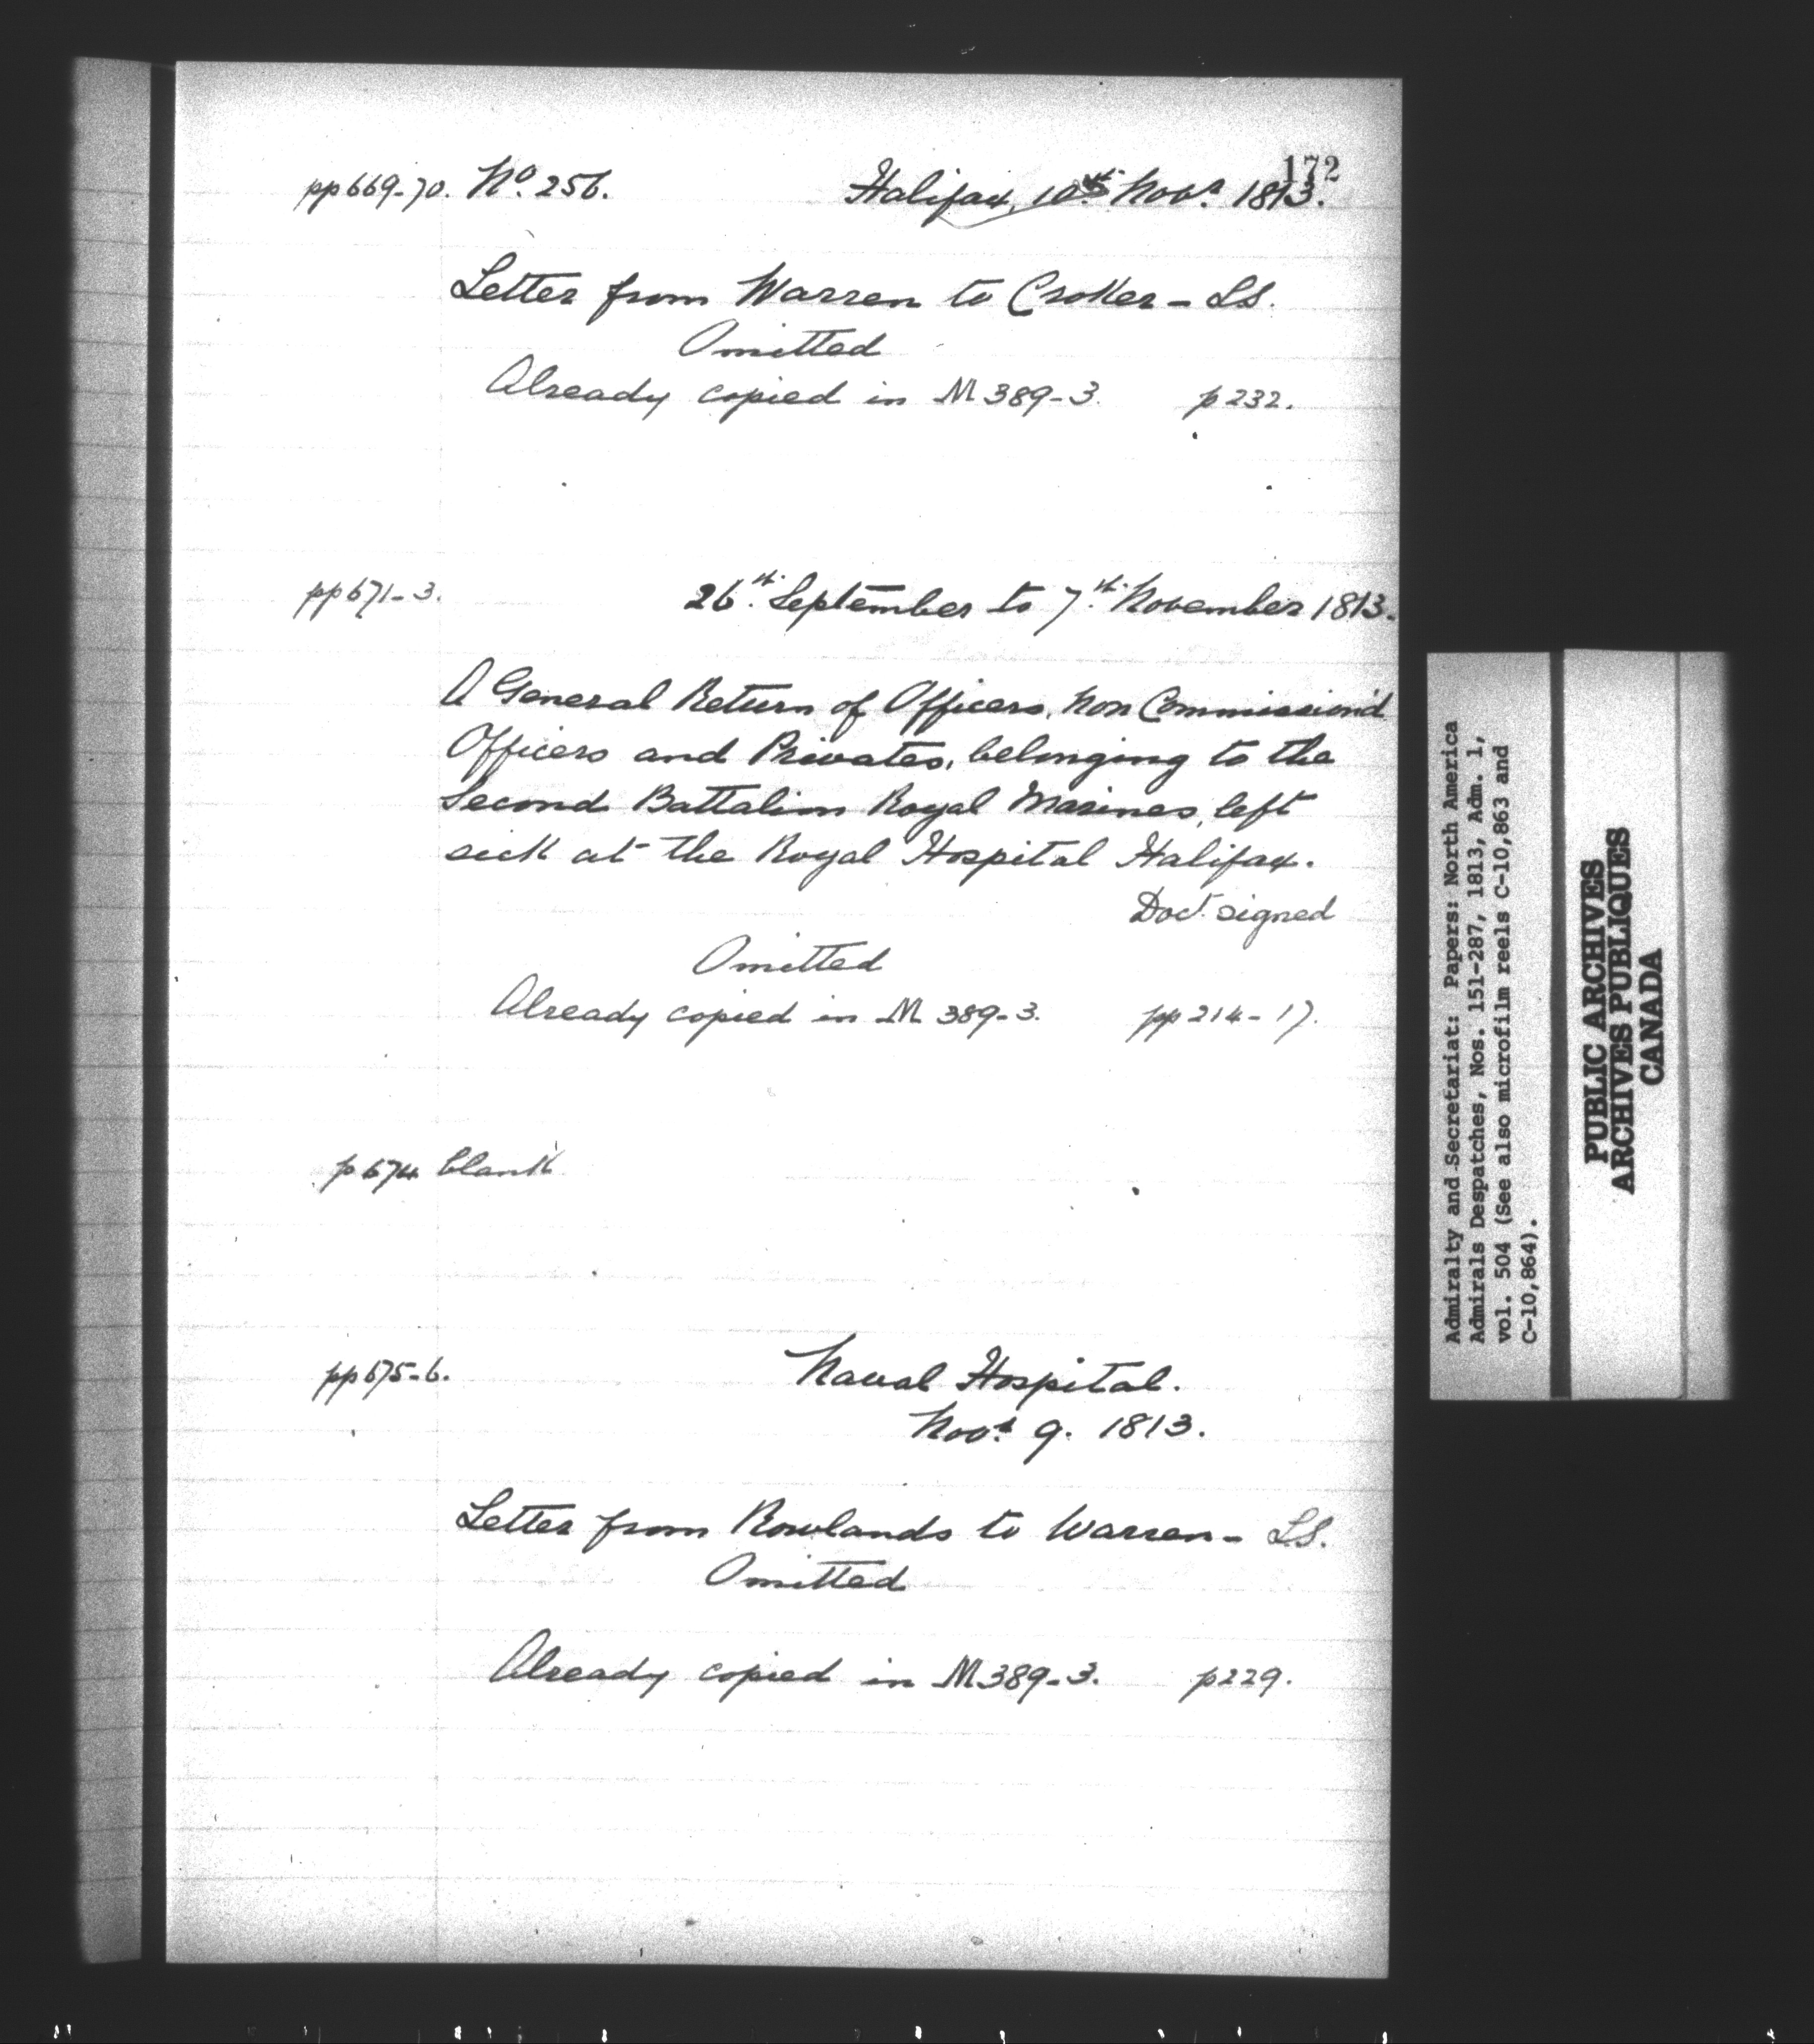 172
pp 669-70. No. 256. Halifax, 10th Novr. 1813.
Letter from Warren to Croker - LS.
Omitted
Already copied in M 389-3. p 232.
pp 671-3. 26th. September to 7th. November 1813.
A General Return of Officers, Non Commission'd
Officers and Privates, belonging to the
Second Battalion Royal Marines, left
sick at the Royal Hospital Halifax.
Doct. signed
Omitted
Already copied in M 389-3. pp 214-17.
p 674 blank
pp 675-6. Naval Hospital.
Novr. 9. 1813.
Letter from Rowlands to Warren - LS.
Omitted
Already copied in M 389-3. p 229.
Admiralty and Secretariat: Papers: North America
Admirals Despatches, Nos. 151-287, 1813, Adm. 1,
vol. 504 (See also microfilm reels C-10,863 and
C-10,864).
PUBLIC ARCHIVES
ARCHIVES PUBLIQUES
CANADA